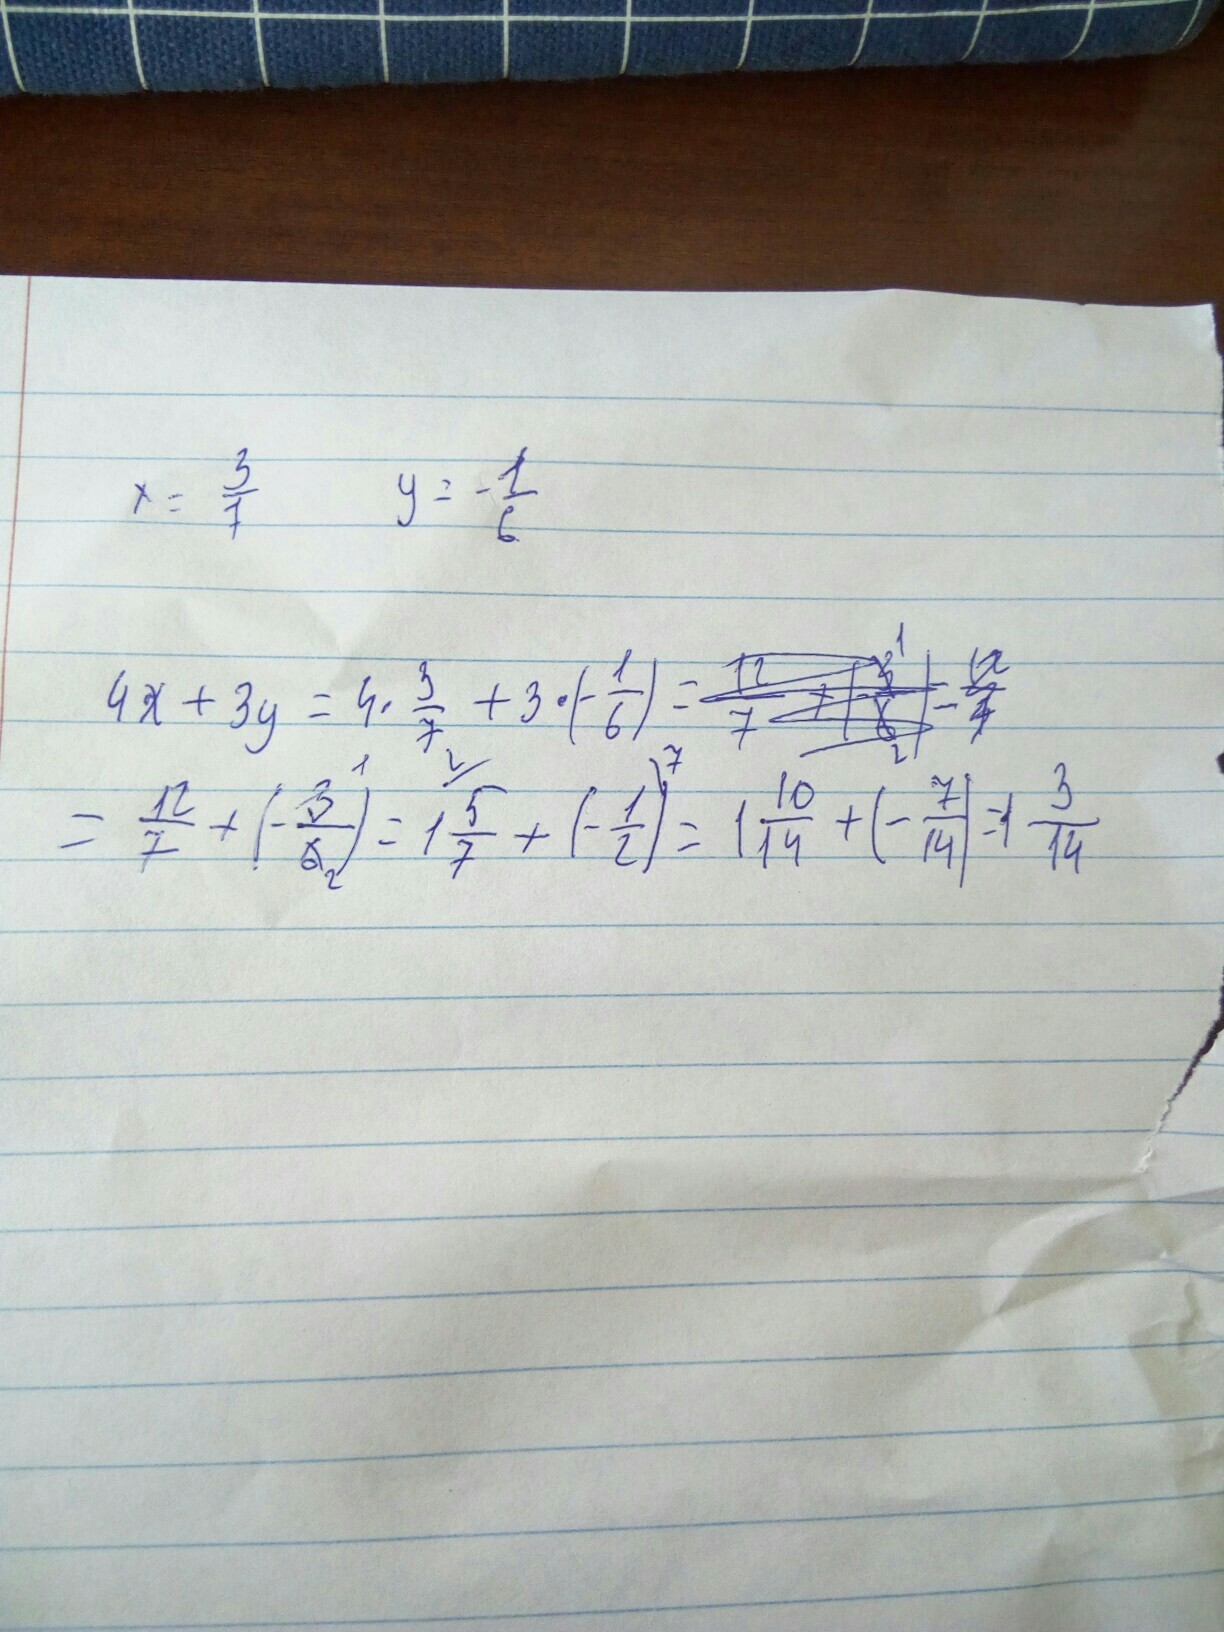 x = 3/7 y = -1/6
4x + 3y = 4 · 3/7 + 3 · (-1/6) =
= 12/7 + (-3/6) = 1 5/7 + (-1/2) = 1 10/14 + (-7/14) = 1 3/14